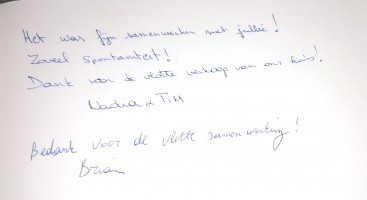 Het was fijn samenwerken met jullie!
Zoveel spontaniteit!
Dank voor de vlotte verkoop van ons huis!
Nadia & Tim
Bedankt voor de vlotte samenwerking!
Brian